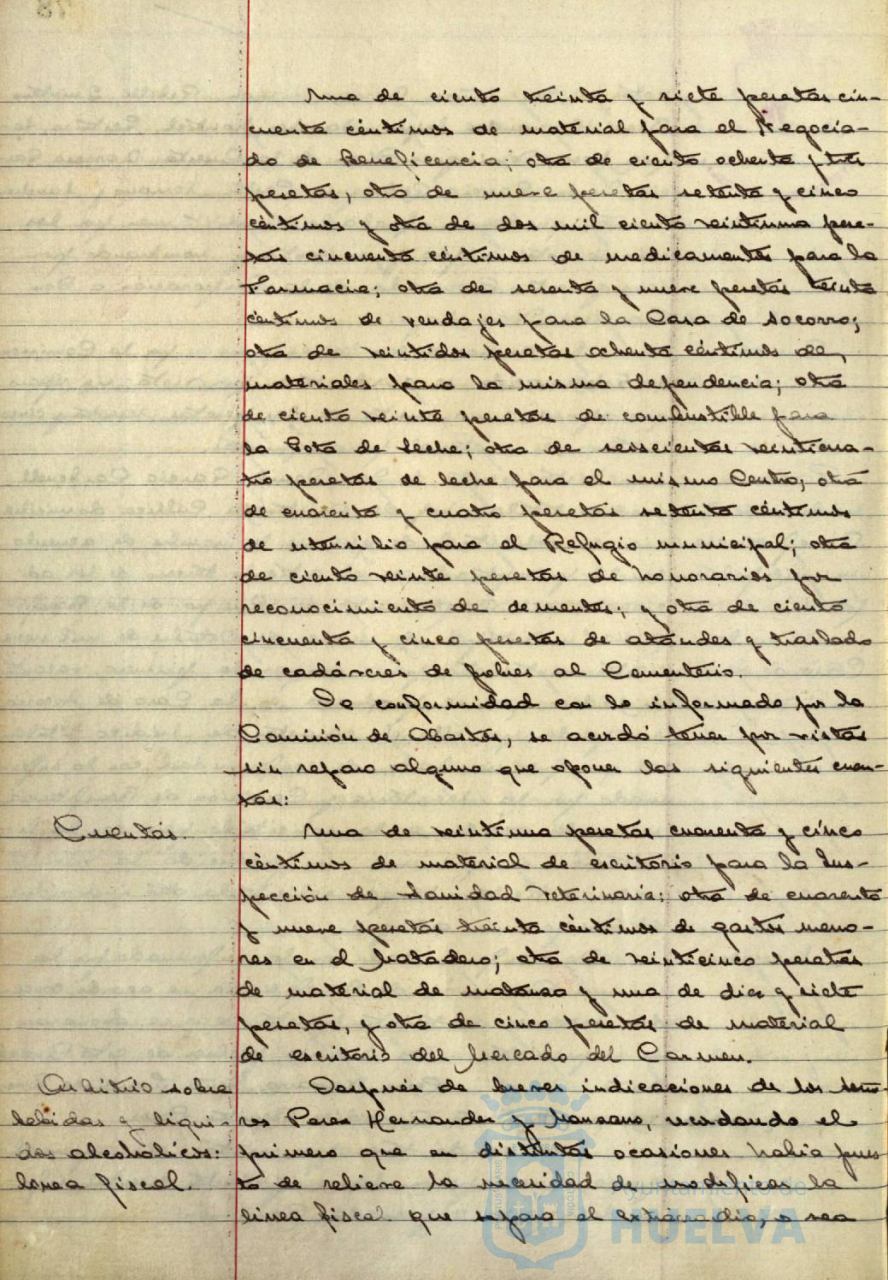 Una de ciento treinta y siete pesetas cin-
cuenta céntimos de material para el Negocia-
do de Beneficencia; otra de ciento ochenta y tres
pesetas, otra de nueve pesetas setenta y cinco
céntimos y otra de dos mil ciento veintiuna pese-
tas cincuenta céntimos de medicamentos para la
Farmacia; otra de sesenta y nueve pesetas treinta
céntimos de vendajes para la Casa de Socorro;
otra de veintidos pesetas ochenta céntimos de
materiales para la misma dependencia; otra
de ciento veinte pesetas de combustible para
la Gota de leche; otra de seiscientas veinticua-
tro pesetas de leche para el mismo Centro; otra
de cuarenta y cuatro pesetas setenta céntimos
de utensilio para el Refugio municipal; otra
de ciento veinte pesetas de honorarios por
reconocimiento de dementes; y otra de ciento
cincuenta y cinco pesetas de ataudes y traslado
de cadáveres de pobres al Cementerio.
De conformidad con lo informado por la
Comisión de Abastos, se acordó tener por vistas
sin reparo alguno que oponer las siguientes cuen-
tas:
Cuentas.
Una de veintiuna pesetas cuarenta y cinco
céntimos de material de escritorio para la Ins-
pección de Sanidad Veterinaria; otra de cuarenta
y nueve pesetas treinta céntimos de gastos meno-
res en el Matadero; otra de veinticinco pesetas
de material de matanza y una de diez y siete
pesetas, y otra de cinco pesetas de material
de escritorio del Mercado del Carmen.
Arbitrio sobre
bebidas y líqui-
dos alcohólicos:
línea fiscal.
Después de breves indicaciones de los seño-
res Perez Hernandez y Manzano, recordando el
primero que en distintas ocasiones había pues-
to de relieve la necesidad de modificar la
línea fiscal que separa el extraradio, o sea
Ayuntamiento de
HUELVA